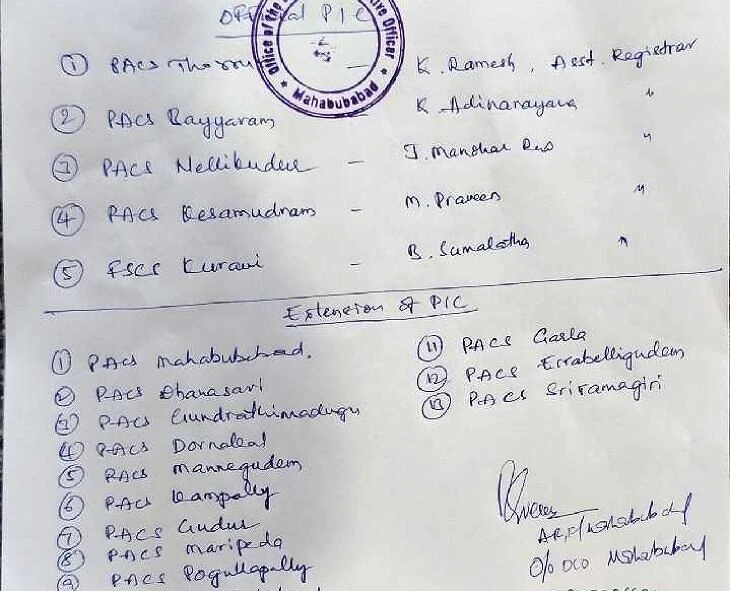 Official PIC
Office of the ... tive Officer
* Mahabubabad *
① PACS Thorru — K. Ramesh, Asst. Registrar
② PACS Bayyaram K. Adinarayana "
③ PACS Nellikudur — J. Manohar Rao "
④ PACS Kesamudram — M. Praveen "
⑤ FSCS Kuravi — B. Sumalatha "
Extension of PIC
① PACS Mahabubabad.
② PACS Dhanasari
③ PACS Gundrathimadugu
④ PACS Dornakal
⑤ PACS Mannegudem
⑥ PACS Kampally
⑦ PACS Gudur
⑧ PACS Maripeda
⑨ PACS Pogullapally
⑪ PACS Garla
⑫ PACS Errabelligudem
⑬ PACS Sriramagiri
AR, F/Mahabubabad
O/o DCO Mahabubabad